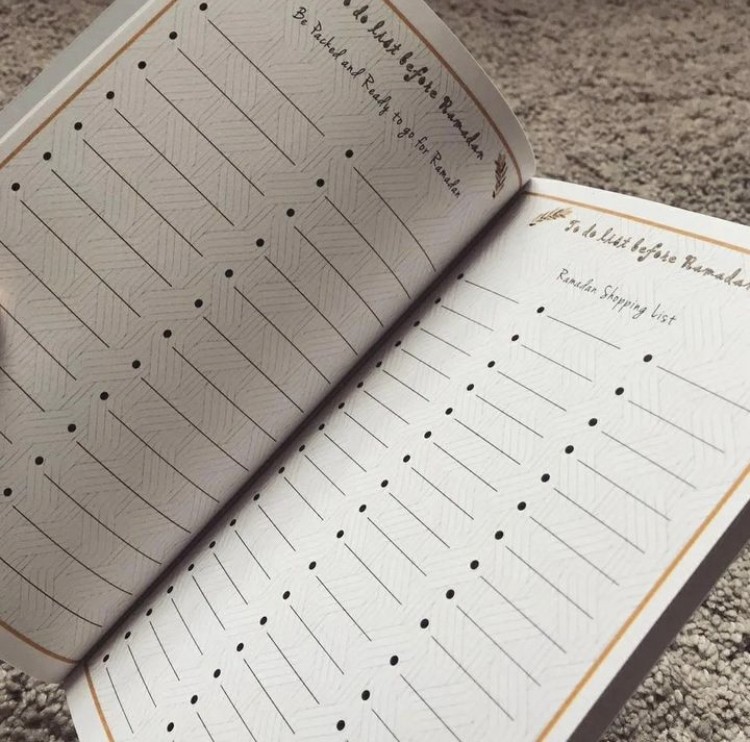 To do list before Ramadan
Be Packed and Ready to go for Ramadan
To do list before Ramadan
Ramadan Shopping list